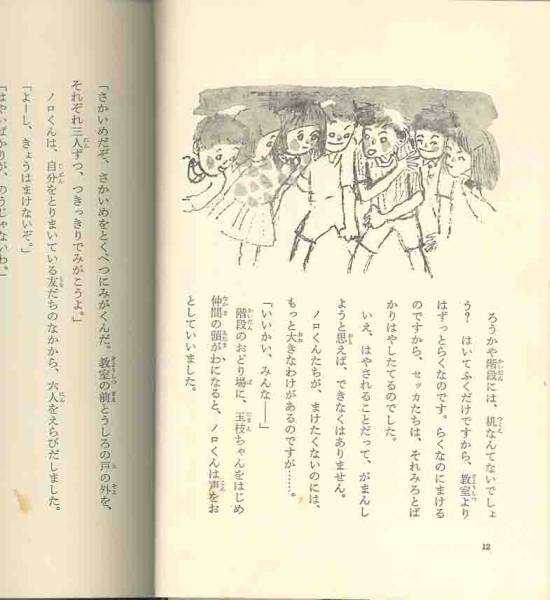 ろうかや階段には、机なんてないでしょ
う？　はいてふくだけですから、教室より
はずっとらくなのです。らくなのにまける
のですから、セッカたちは、それみろとば
かりはやしたてるのでした。
いえ、はやされることだって、がまんし
ようと思えば、できなくはありません。
ノロくんたちが、まけたくないのには、
もっと大きなわけがあるのですが……。
「いいかい、みんな――」
階段のおどり場に、玉枝ちゃんをはじめ
仲間の頭がわになると、ノロくんは声をお
としていいました。
12
「さかいめだぞ、さかいめをとくべつにみがくんだ。教室の前とうしろの戸の外を、
それぞれ三人ずつ、つきっきりでみがこうよ。」
ノロくんは、自分をとりまいている友だちのなかから、六人をえらびだしました。
「よーし、きょうはまけないぞ。」
「はやいばかりが、のうじゃないわ。」